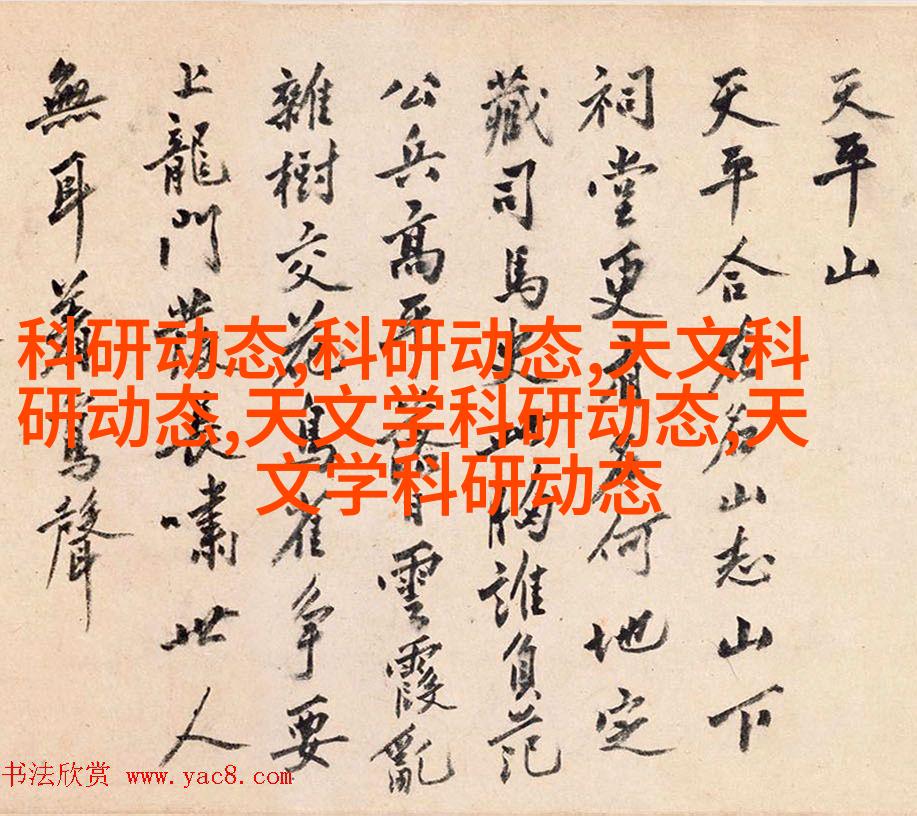 天平山
天平合名山志山下
祠堂更有何地定
藏司馬史此誰負范
公兵高平雲霞亂
雜樹交花鳥雀爭要
上龍門發長嘯世人
無耳聲
科研动态,科研动态,天文科
研动态,天文学科研动态,天
文学科研动态
书法欣赏 www.yac8.com